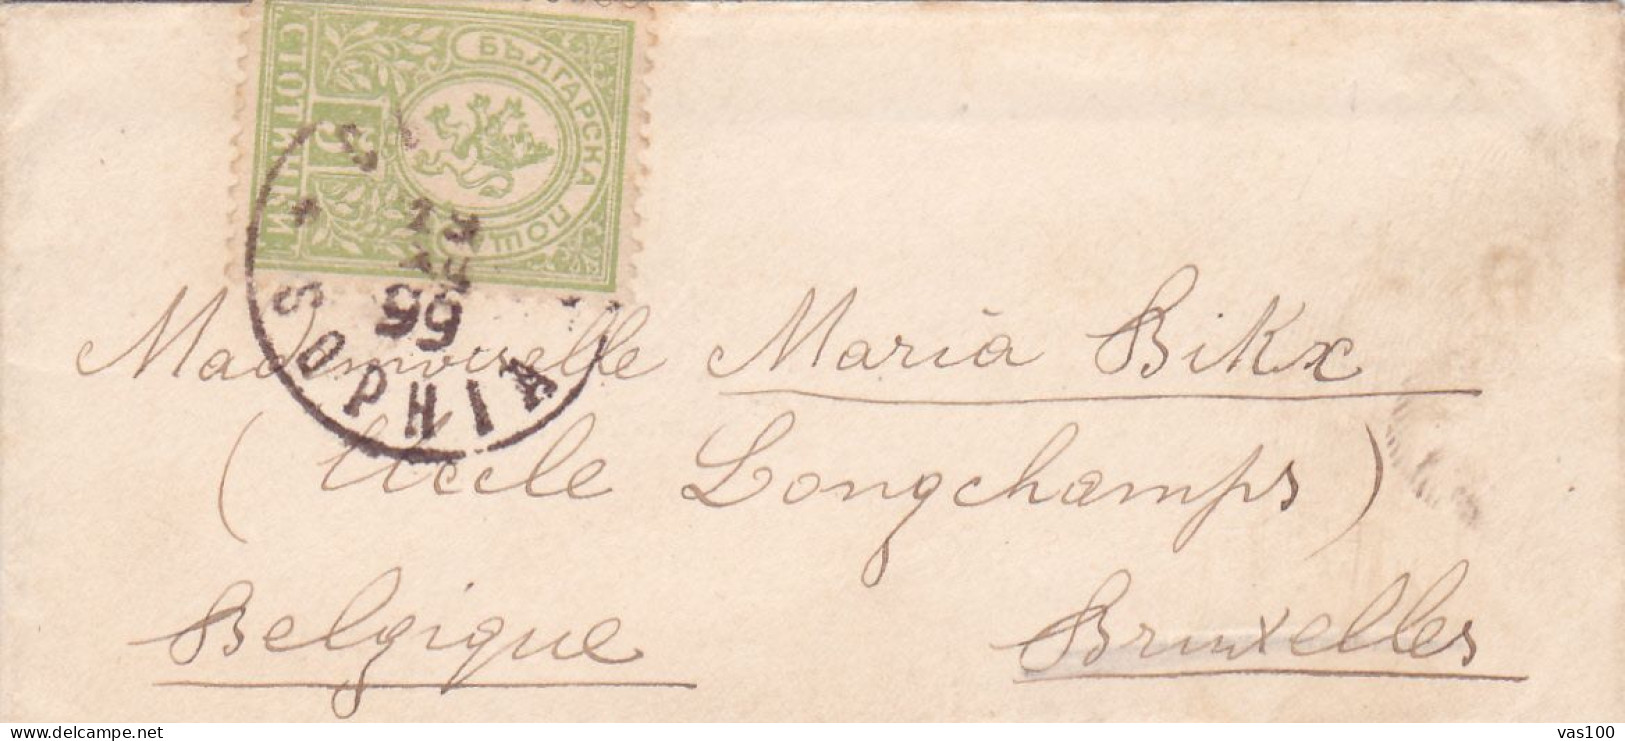 БЪЛГАРСКА ПОЩА
5
СТОТИНКИ
SOPHIA
99
Mademoiselle Maria Bikx
(Uccle Longchamps)
Belgique Bruxelles
vas100